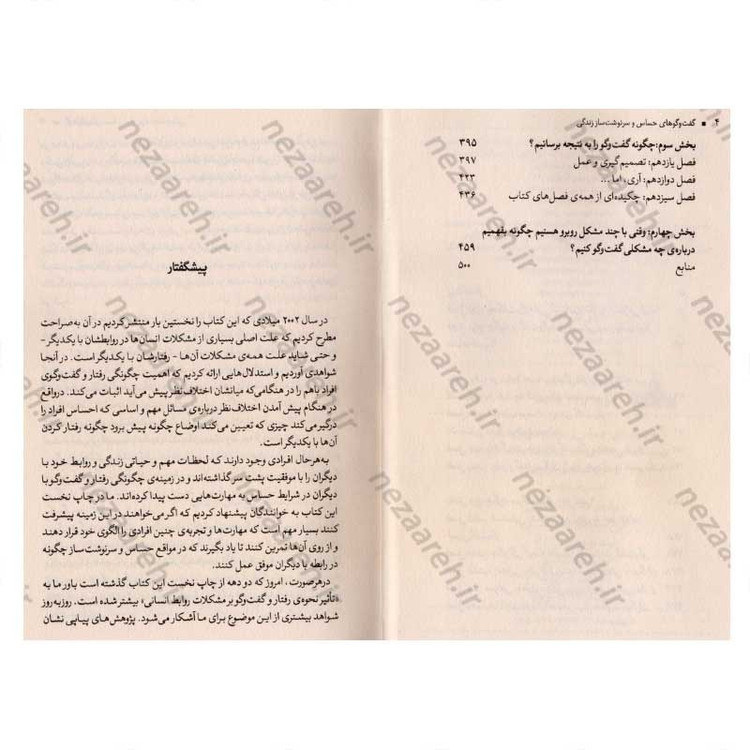 ۴ ■ گفت‌وگوهای حساس و سرنوشت‌ساز زندگی
بخش سوم: چگونه گفت‌وگو را به نتیجه برسانیم؟ ۳۹۵
فصل یازدهم: تصمیم‌گیری و عمل ۳۹۷
فصل دوازدهم: آری، اما ... ۴۲۳
فصل سیزدهم: چکیده‌ای از همه‌ی فصل‌های کتاب ۴۳۶
بخش چهارم: وقتی با چند مشکل روبرو هستیم چگونه بفهمیم
درباره‌ی چه مشکلی گفت‌وگو کنیم؟ ۴۵۹
منابع ۵۰۰
پیشگفتار
در سال ۲۰۰۲ میلادی که این کتاب را نخستین بار منتشر کردیم در آن به‌صراحت
مطرح کردیم که علت اصلی بسیاری از مشکلات انسان‌ها در روابطشان با یکدیگر -
و حتی شاید علت همه‌ی مشکلات آن‌ها - رفتارشان با یکدیگر است. در آنجا
شواهدی آوردیم و استدلال‌هایی ارائه کردیم که اهمیت چگونگی رفتار و گفت‌وگوی
افراد باهم را در هنگامی‌که میانشان اختلاف‌نظر پیش می‌آید اثبات می‌کند. درواقع
در هنگام پیش آمدن اختلاف‌نظر درباره‌ی مسائل مهم و اساسی که احساس افراد را
درگیر می‌کند چیزی که تعیین می‌کند اوضاع چگونه پیش برود چگونه رفتار کردن
آن‌ها با یکدیگر است.
به‌هرحال افرادی وجود دارند که لحظات مهم و حیاتی زندگی و روابط خود با
دیگران را با موفقیت پشت سر گذاشته‌اند و در زمینه‌ی چگونگی رفتار و گفت‌وگو با
دیگران در شرایط حساس به مهارت‌هایی دست پیدا کرده‌اند. ما در چاپ نخست
این کتاب به خوانندگان پیشنهاد کردیم که اگر می‌خواهند در این زمینه پیشرفت
کنند بسیار مهم است که مهارت‌ها و تجربه‌ی چنین افرادی را الگوی خود قرار دهند
و از روی آن‌ها تمرین کنند تا یاد بگیرند که در مواقع حساس و سرنوشت‌ساز چگونه
در رابطه با دیگران موفق عمل کنند.
درهرصورت، امروز که دو دهه از چاپ نخست این کتاب گذشته است باور ما به
«تأثیر نحوه‌ی رفتار و گفت‌وگو بر مشکلات روابط انسانی» بیشتر شده است. روزبه‌روز
شواهد بیشتری از این موضوع برای ما آشکار می‌شود. پژوهش‌های پیاپی نشان
nezaareh.ir